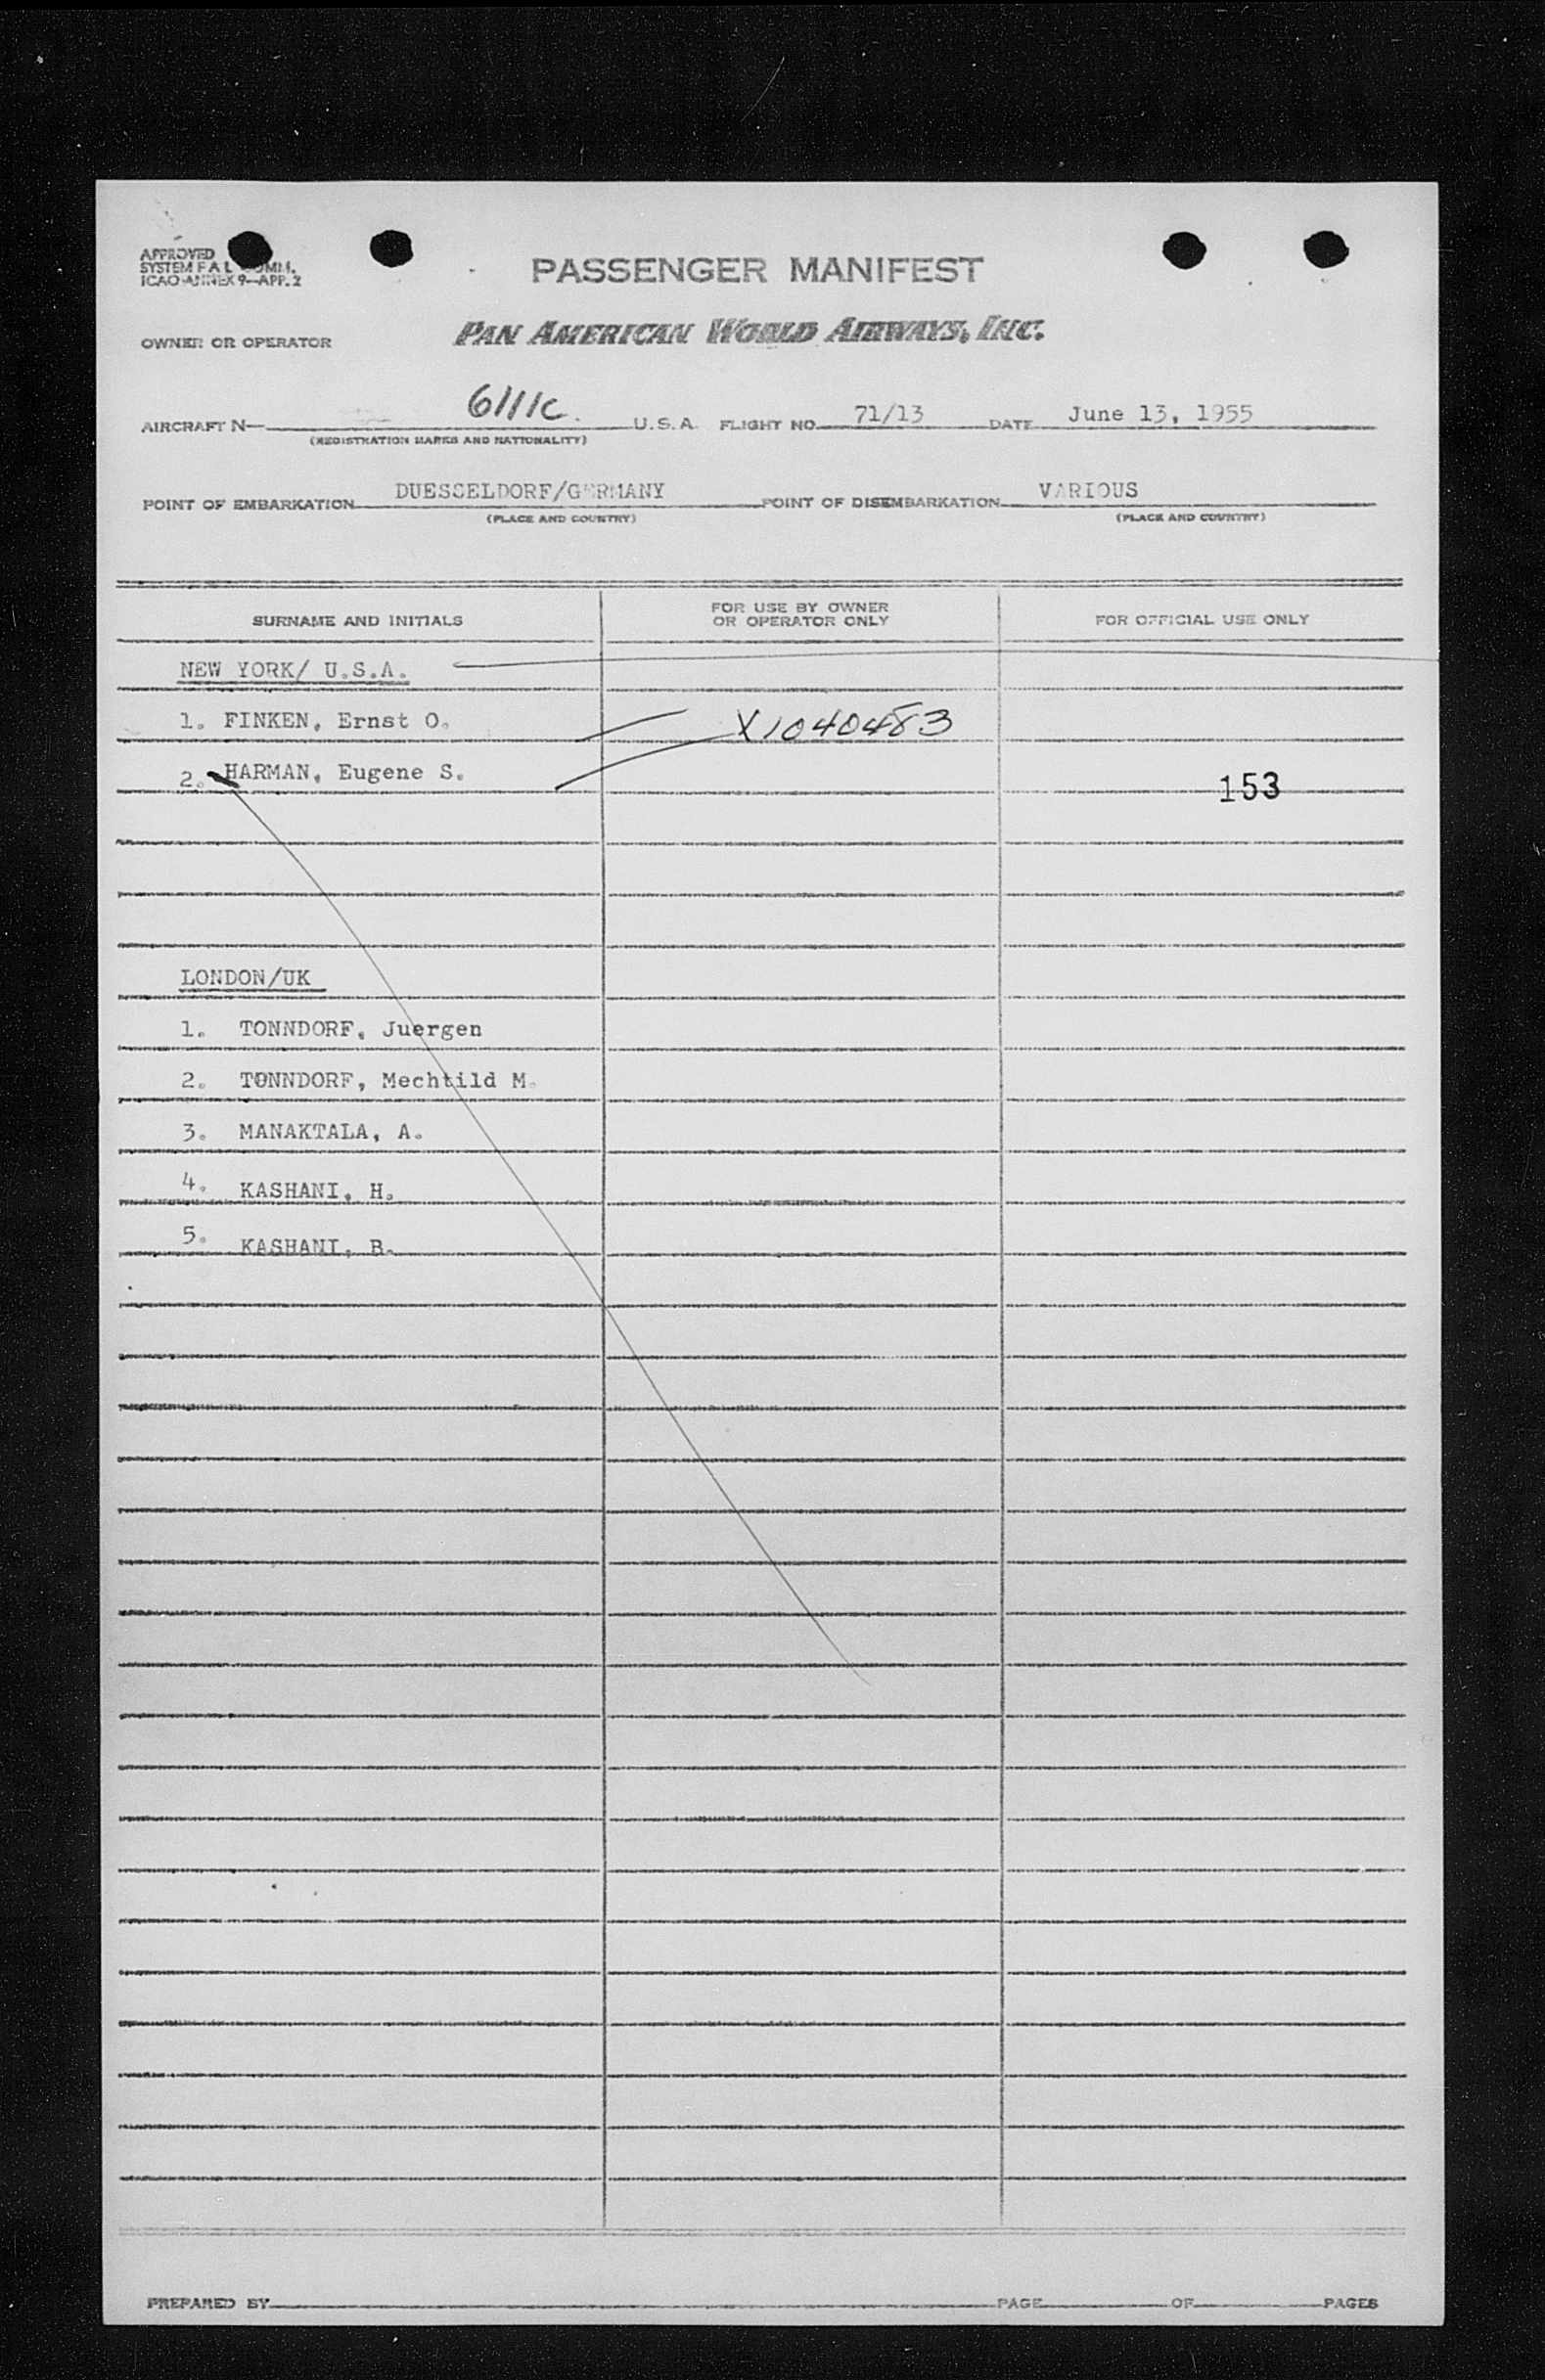 APPROVED
SYSTEM F A L COMM.
ICAO-ANNEX 9-APP. 2
PASSENGER MANIFEST
OWNER OR OPERATOR PAN AMERICAN WORLD AIRWAYS, INC.
AIRCRAFT N- 6111C. U.S.A. FLIGHT NO. 71/13 DATE June 13, 1955
(REGISTRATION MARKS AND NATIONALITY)
POINT OF EMBARKATION DUESSELDORF/GERMANY POINT OF DISEMBARKATION VARIOUS
(PLACE AND COUNTRY) (PLACE AND COUNTRY)
SURNAME AND INITIALS FOR USE BY OWNER OR OPERATOR ONLY FOR OFFICIAL USE ONLY
NEW YORK/ U.S.A.
1. FINKEN, Ernst O. X1040483
2. HARMAN, Eugene S. 153
LONDON/UK
1. TONNDORF, Juergen
2. TONNDORF, Mechtild M.
3. MANAKTALA, A.
4. KASHANI, H.
5. KASHANI, B.
PREPARED BY PAGE OF PAGES